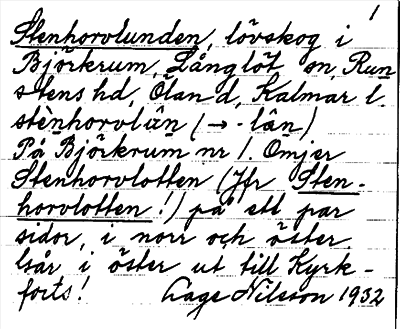 1
Stenhorvlunden, lövskog i
Björkrum, Långlöt sn, Run
stens hd, Öland, Kalmar l.
stènhorvlun̄ (→ -län)
På Björkrum nr 1. Omger
Stenhorvlotten (Jfr Sten-
horvlotten!) på ett par
sidor, i norr och öster.
Går i öster ut till Kyrk-
forts! Lage Nilsson 1932